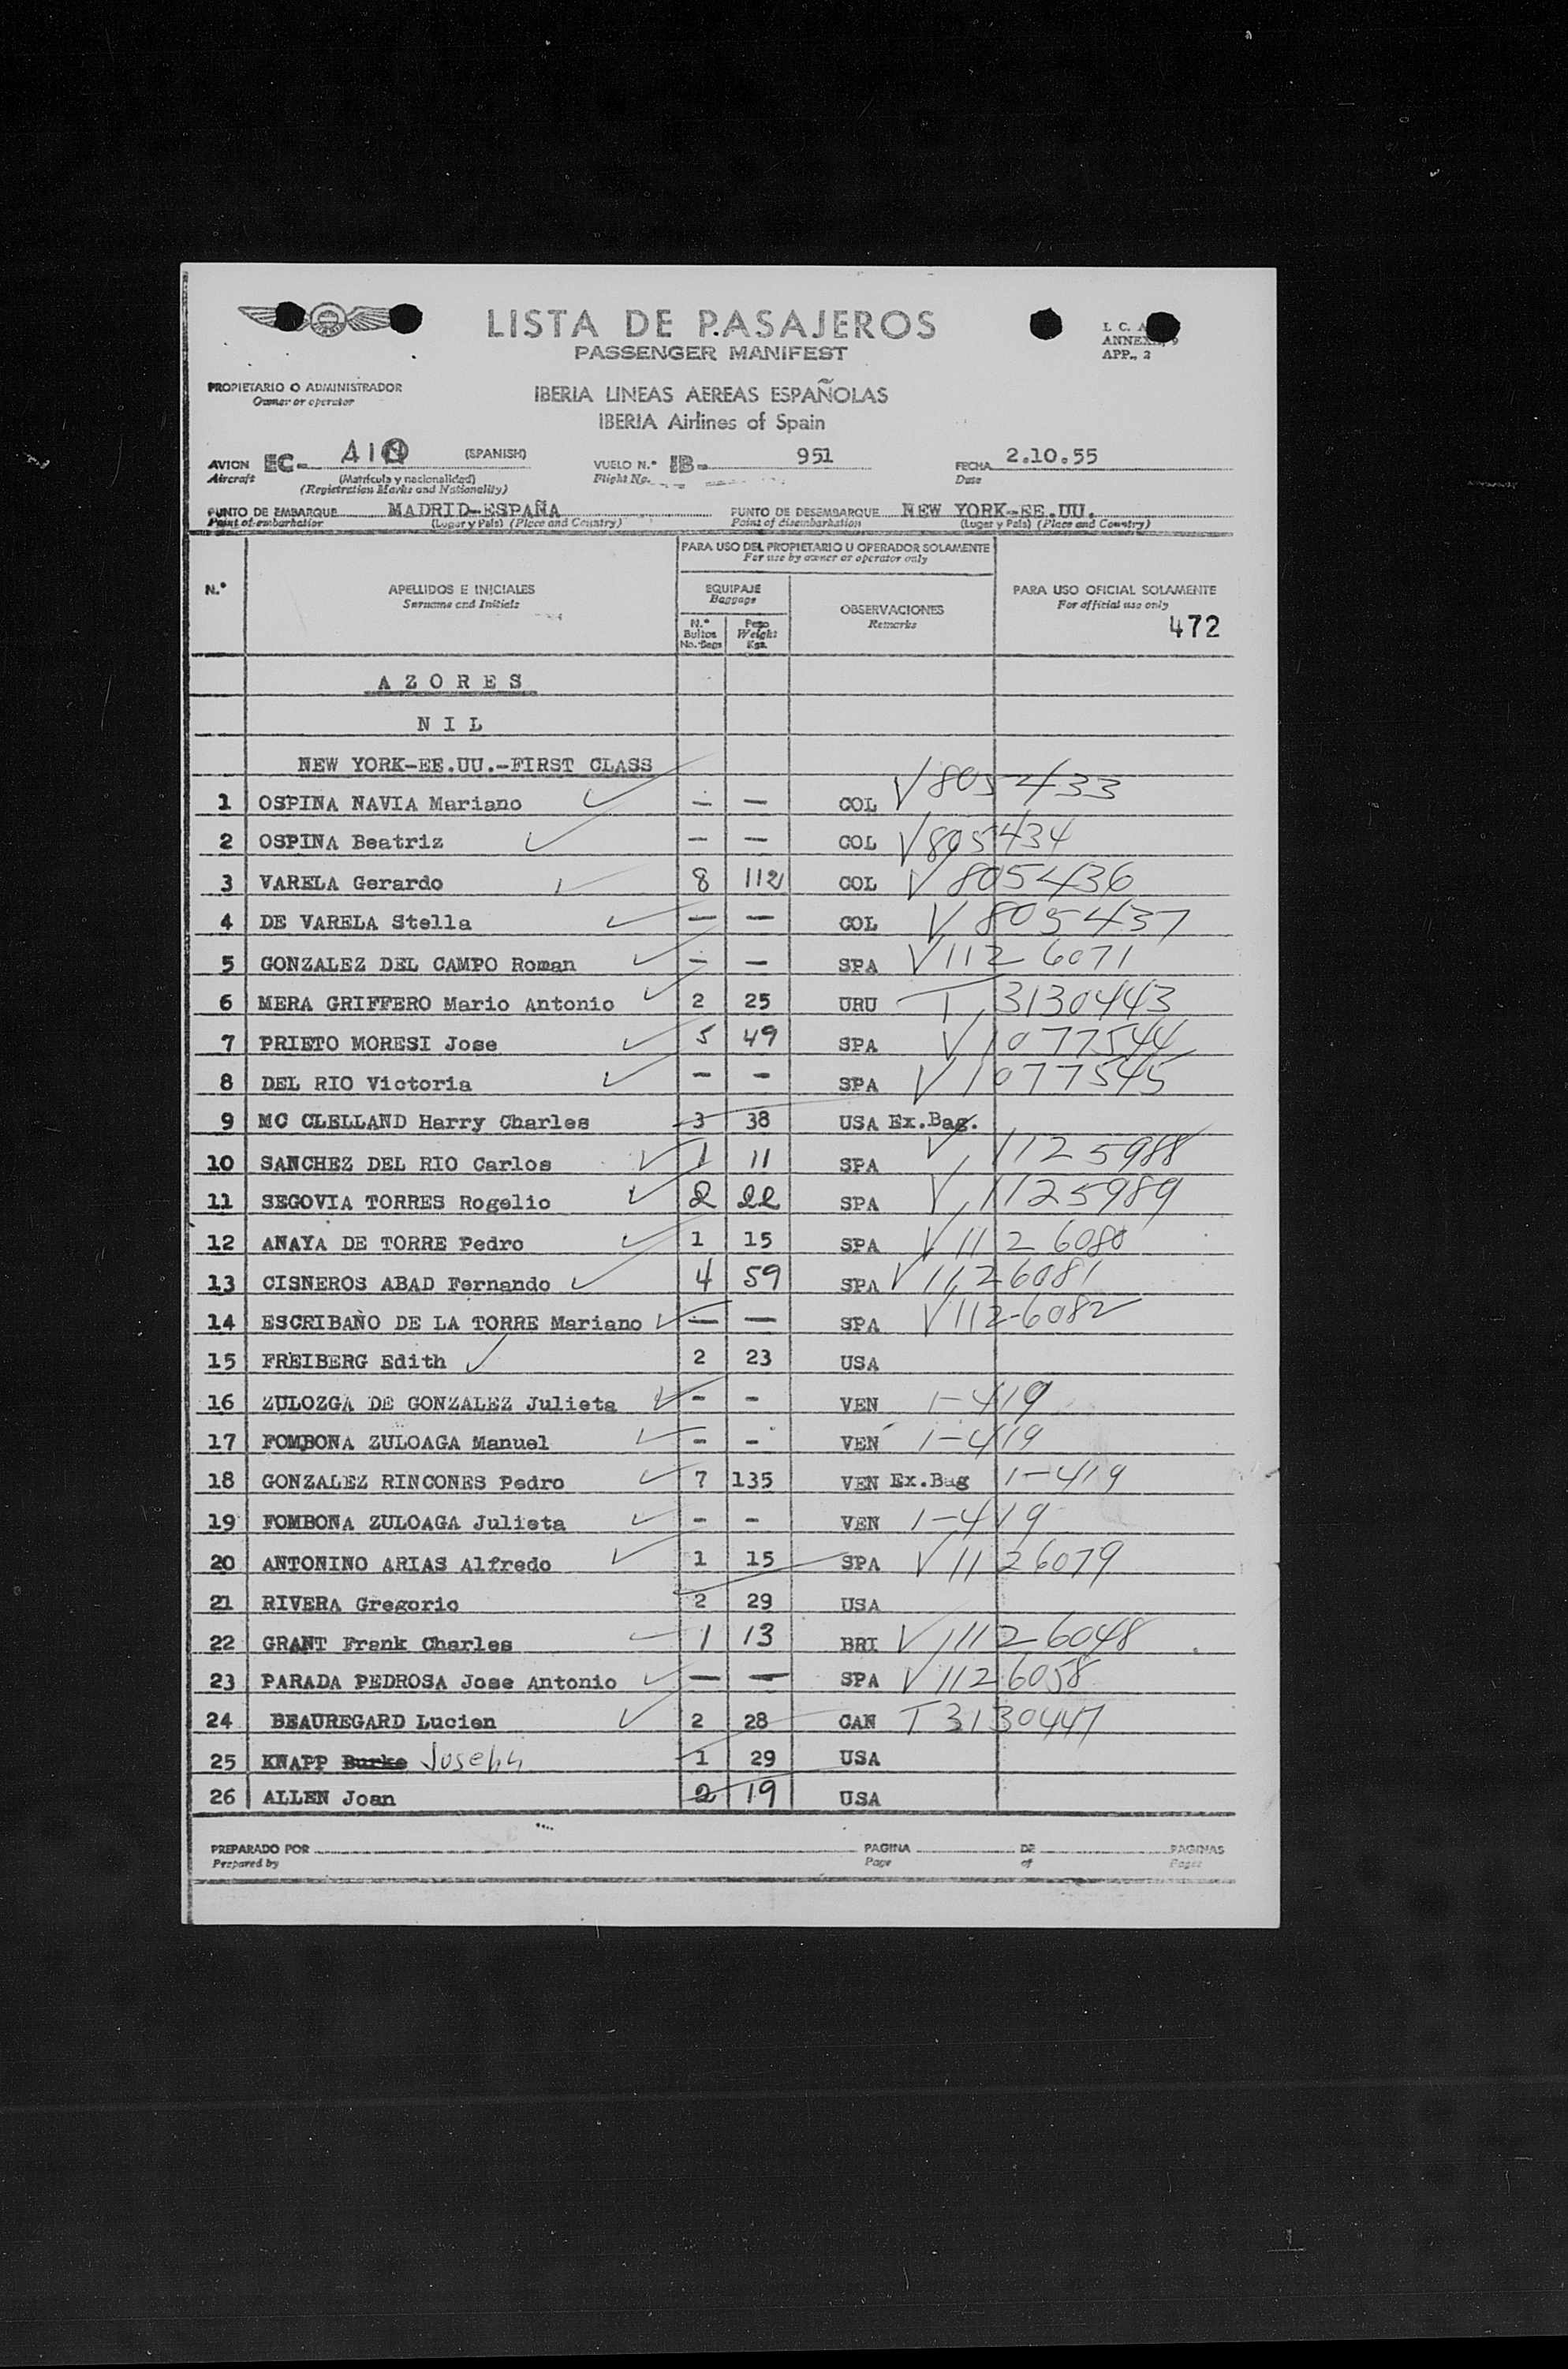 LISTA DE PASAJEROS
PASSENGER MANIFEST
I. C. A
ANNEX, 9
APP., 2
PROPIETARIO O ADMINISTRADOR
Owner or operator
IBERIA LINEAS AEREAS ESPAÑOLAS
IBERIA Airlines of Spain
AVION EC- AIN (SPANISH) VUELO N.° IB- 951 FECHA 2.10.55
Aircraft (Matrícula y nacionalidad) Flight No. Date
(Registration Marks and Nationality)
PUNTO DE EMBARQUE MADRID-ESPAÑA PUNTO DE DESEMBARQUE NEW YORK-EE.UU.
Point of embarkation (Lugar y País) (Place and Country) Point of disembarkation (Lugar y País) (Place and Country)
PARA USO DEL PROPIETARIO U OPERADOR SOLAMENTE
For use by owner or operator only
N.° APELLIDOS E INICIALES EQUIPAJE OBSERVACIONES PARA USO OFICIAL SOLAMENTE
Surname and Initials Baggage Remarks For official use only
N.° Bultos No. Bags Peso Weight Kgs. 472
AZORES
NIL
NEW YORK-EE.UU.-FIRST CLASS
1 OSPINA NAVIA Mariano - - COL V 805 433
2 OSPINA Beatriz - - COL V 805 434
3 VARELA Gerardo 8 112 COL V 805 436
4 DE VARELA Stella - - COL V 805 437
5 GONZALEZ DEL CAMPO Roman - - SPA V 112 6071
6 MERA GRIFFERO Mario Antonio 2 25 URU T 3130443
7 PRIETO MORESI Jose 5 49 SPA V 1077544
8 DEL RIO Victoria - - SPA V 1077545
9 MC CLELLAND Harry Charles 3 38 USA Ex.Bag.
10 SANCHEZ DEL RIO Carlos 1 11 SPA V 1125988
11 SEGOVIA TORRES Rogelio 2 22 SPA V 1125989
12 ANAYA DE TORRE Pedro 1 15 SPA V 1126080
13 CISNEROS ABAD Fernando 4 59 SPA V 1126081
14 ESCRIBAÑO DE LA TORRE Mariano - - SPA V 112-6082
15 FREIBERG Edith 2 23 USA
16 ZULOZGA DE GONZALEZ Julieta - - VEN 1-419
17 FOMBONA ZULOAGA Manuel - - VEN 1-419
18 GONZALEZ RINCONES Pedro 7 135 VEN Ex.Bag 1-419
19 FOMBONA ZULOAGA Julieta - - VEN 1-419
20 ANTONINO ARIAS Alfredo 1 15 SPA V 1126079
21 RIVERA Gregorio 2 29 USA
22 GRANT Frank Charles 1 13 BRI V 1126048
23 PARADA PEDROSA Jose Antonio - - SPA V 1126058
24 BEAUREGARD Lucien 2 28 CAN T 3130447
25 KNAPP Burke Joseph 1 29 USA
26 ALLEN Joan 2 19 USA
PREPARADO POR PAGINA DE PAGINAS
Prepared by Page of Pages